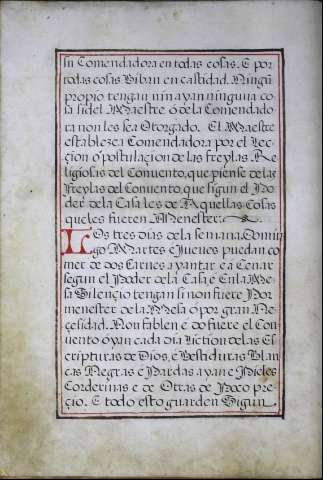 su Comendadora en todas cosas. E por
todas cosas Biban en castidad. Ningũ
propio tengan nin ayan ninguna co
sa si del Maestre ó de la Comendado
ra non les sea Otorgado. El Maestre
establezca Comendadora por el Lec
çion o postulaçion de las freylas. Re
ligiosas del Convento, que piense de las
Freylas del Convento, que sigun el Po
der de la Casa les dé Aquellas Cosas
que les fueren Menester.
LOs tres dias de la semana. Domin
go Martes e Jueves puedan co
mer de dos Carnes a yantar e a Cenar
segun el Poder de la Casa, e En la Me
sa Silençio tengan si non fuere Por
menester de la Mesa ó por gran Ne
çesidad. Non fablen e do fuere el Con
vento óyan cada dia Liction de las Es
cripturas de Dios, é Bestiduras Blan
cas Negras e Pardas ayan e Pieles
Corderinas e de Otras de Poco pre
çio. E todo esto guarden Sigun